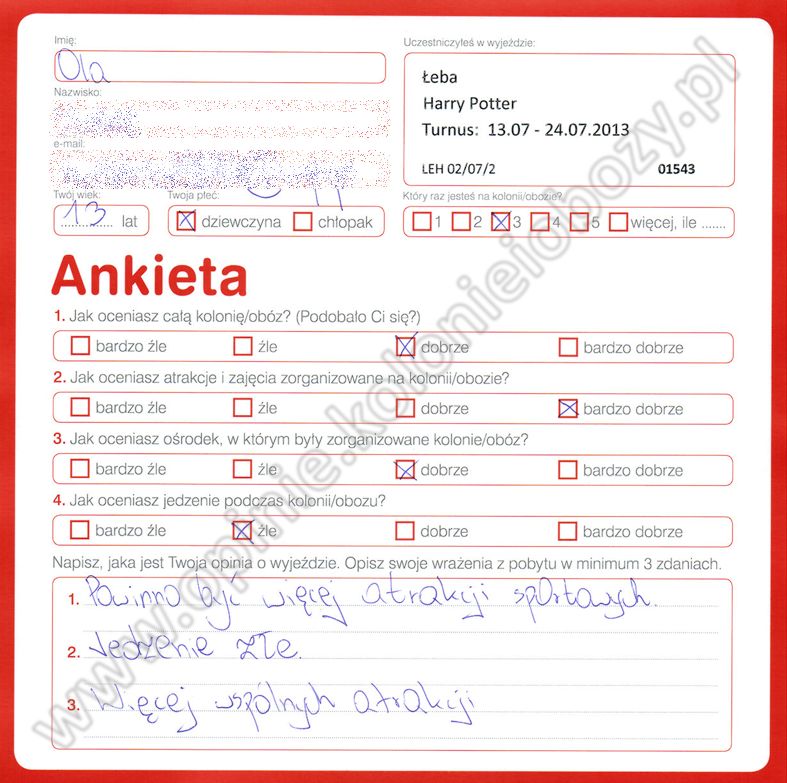 Imię:
Ola
Nazwisko:
e-mail:
Twój wiek:
13 lat
Twoja płeć:
dziewczyna chłopak
Uczestniczyłeś w wyjeździe:
Łeba
Harry Potter
Turnus: 13.07 - 24.07.2013
LEH 02/07/2 01543
Który raz jesteś na kolonii/obozie?
1 2 3 4 5 więcej, ile .......
Ankieta
1. Jak oceniasz całą kolonię/obóz? (Podobało Ci się?)
bardzo źle źle dobrze bardzo dobrze
2. Jak oceniasz atrakcje i zajęcia zorganizowane na kolonii/obozie?
bardzo źle źle dobrze bardzo dobrze
3. Jak oceniasz ośrodek, w którym były zorganizowane kolonie/obóz?
bardzo źle źle dobrze bardzo dobrze
4. Jak oceniasz jedzenie podczas kolonii/obozu?
bardzo źle źle dobrze bardzo dobrze
Napisz, jaka jest Twoja opinia o wyjeździe. Opisz swoje wrażenia z pobytu w minimum 3 zdaniach.
1. Powinno być więcej atrakcji sportowych.
2. Jedzenie złe.
3. Więcej wspólnych atrakcji
www.opinie.kolonieiobozy.pl